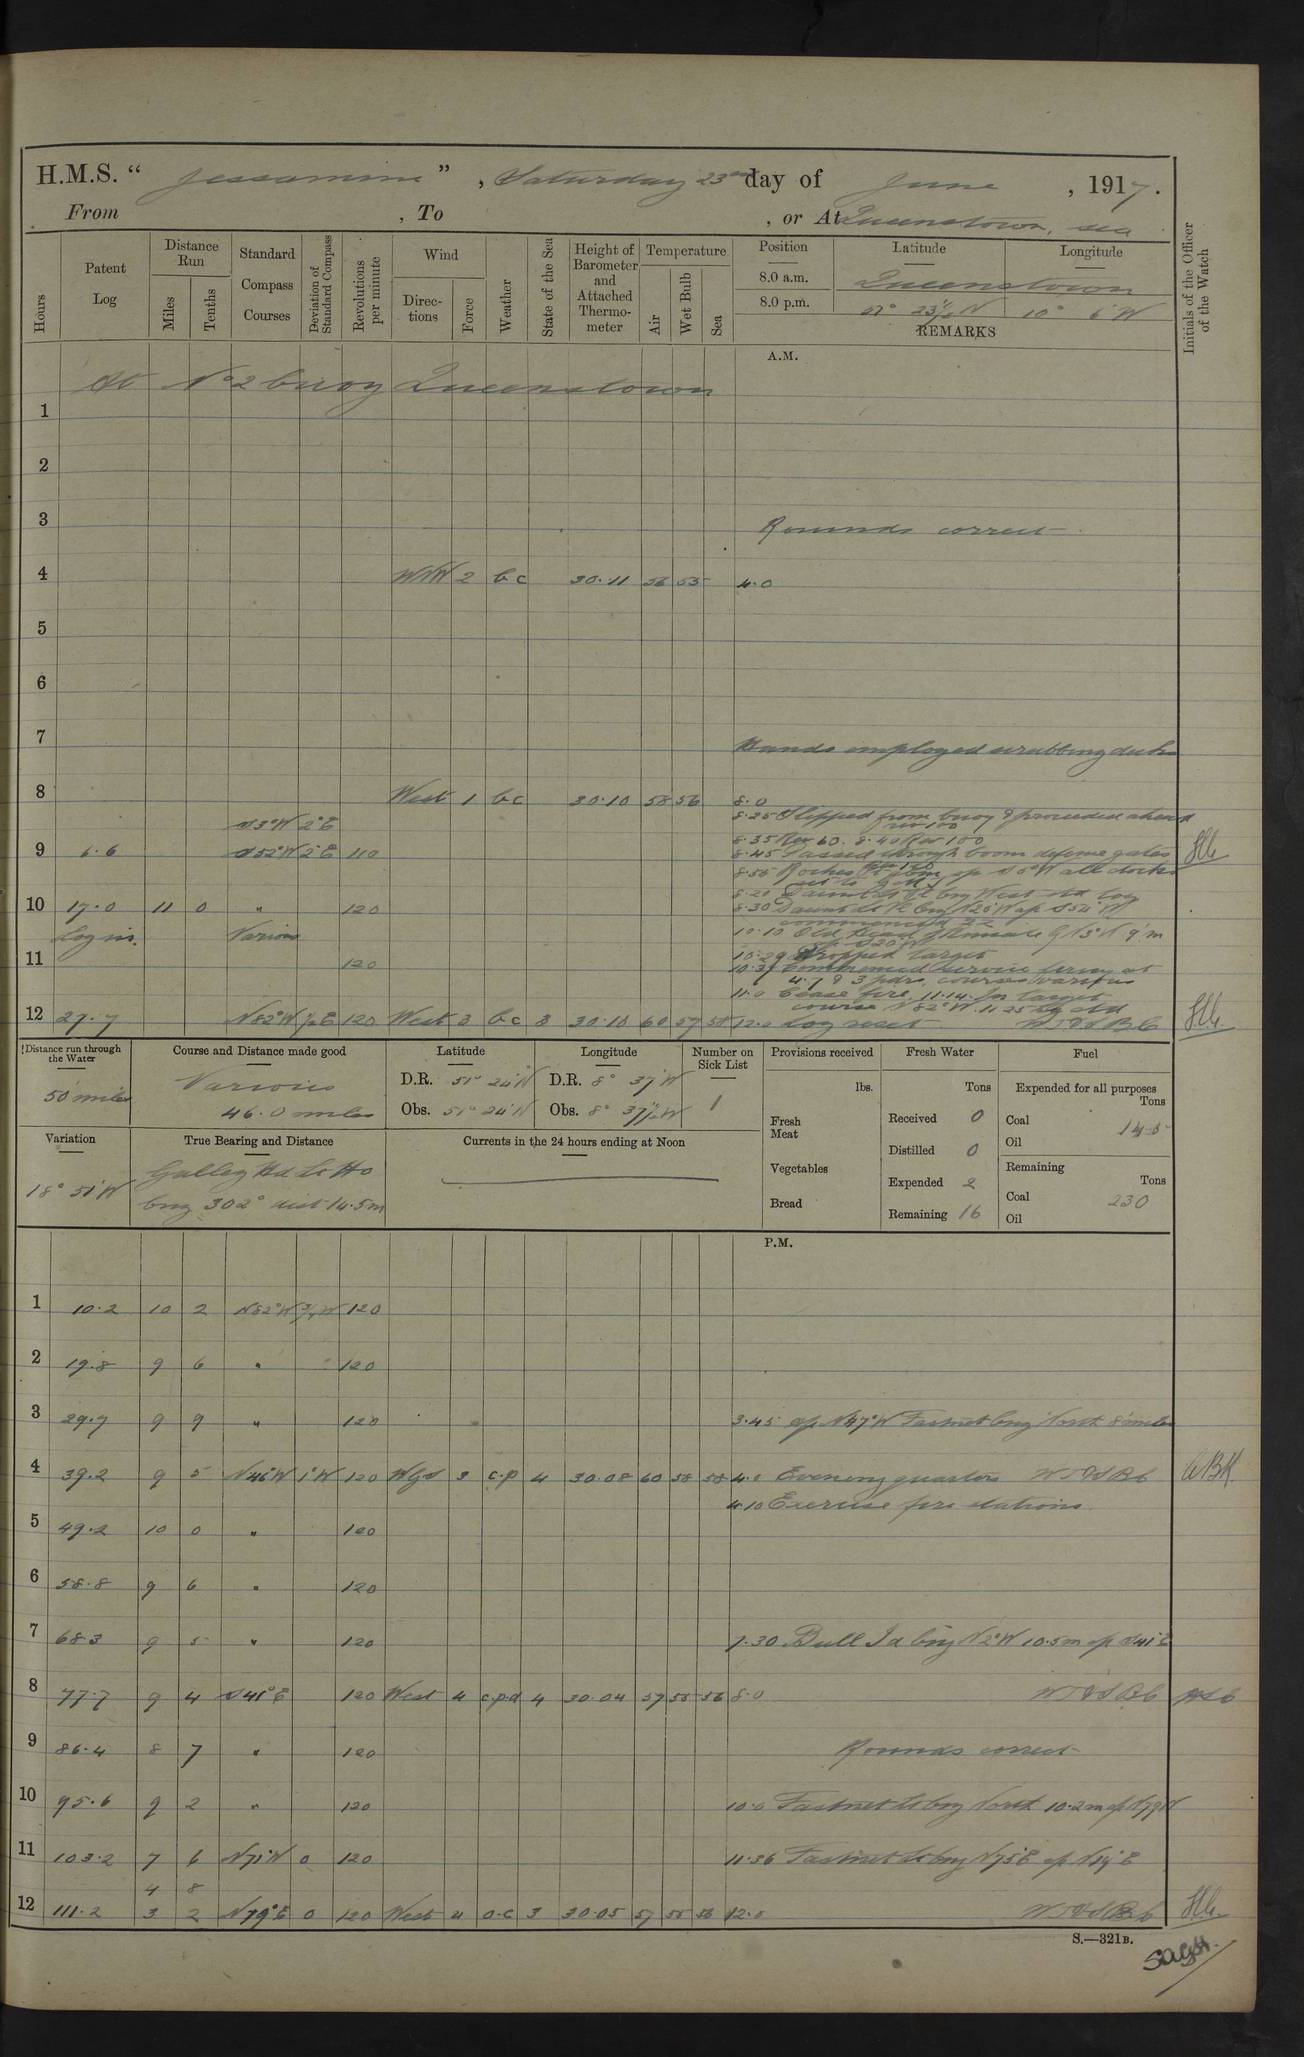 H.M.S. “ Jessamine ”, Saturday 23rd day of June, 1917.
From , To , or At Queenstown, sea
Hours
Patent Log
Distance Run
Miles
Tenths
Standard Compass Courses
Deviation of Standard Compass
Revolutions per minute
Wind
Directions
Force
Weather
State of the Sea
Height of Barometer and Attached Thermometer
Temperature
Air
Wet Bulb
Sea
Position
Latitude
Longitude
8.0 a.m. Queenstown
8.0 p.m. 51° 23½ N 10° 6 W
REMARKS
Initials of the Officer of the Watch
A.M.
At No 2 buoy Queenstown
1
2
3 Rounds correct
4 WNW 2 bc 30.11 56 55 4.0
5
6
7 Hands employed scrubbing decks
8 West 1 bc 30.10 58 56 8.0
8.25 Slipped from buoy & proceeded ahead
S3°W 2°E
8.35 Rev 60. 8.40 Rev 100
9 6.6 S52°W 2°E 110 8.45 Passed through boom defence gates
10 17.0 11 0 " 120
Log in. Various
10.10 Old Head of Kinsale
11 120 10.29 Dropped target
10.37 Commenced service firing at
4.7 & 3 pdrs, courses various
11.0 Cease fire. 11.14
course N82°W. 11.25
12 27.7 N82°W ½E 120 West 3 bc 3 30.10 60 57 58 12.0 Log reset W.T & S.B.C
Distance run through the Water
50 miles
Course and Distance made good
Various
46.0 miles
Latitude
D.R. 51° 24' N
Obs. 51° 24' N
Longitude
D.R. 8° 37' W
Obs. 8° 37½ W
Number on Sick List
1
Provisions received
lbs.
Fresh Meat
Vegetables
Bread
Fresh Water
Tons
Received 0
Distilled 0
Expended 2
Remaining 16
Fuel
Expended for all purposes
Tons
Coal 14.5
Oil
Remaining
Tons
Coal 230
Oil
Variation
18° 51' W
True Bearing and Distance
Galley Hd Lt Ho
brg 302° dist 14.5m
Currents in the 24 hours ending at Noon
P.M.
1 10.2 10 2 N82°W ¾W 120
2 19.8 9 6 " 120
3 29.7 9 9 " 120 3.45 a/c N47°W Fastnet brg North 8 miles
4 39.2 9 5 N46°W 1°W 120 WbS 3 c.p 4 30.08 60 58 58 4.0 Evening quarters W.T & S.B.C
4.10 Exercise fire stations.
5 49.2 10 0 " 120
6 58.8 9 6 " 120
7 68.3 9 5 " 120 7.30 Bull Id brg N2°W 10.5m a/c S41°E
8 77.7 9 4 S41°E 120 West 4 c.p.d 4 30.04 57 55 56 8.0 W.T & S.B.C
9 86.4 8 7 " 120 Rounds correct
10 95.6 9 2 " 120 10.0 Fastnet Lt brg North 10.2m a/c N79W
11 103.2 7 6 N71°W 0 120 11.36 Fastnet Lt brg N75°E a/c N79°E
4 8
12 111.2 3 2 N79°E 0 120 West 4 o.c 3 30.05 57 55 56 12.0 W.T & S.B.C
S.—321B.